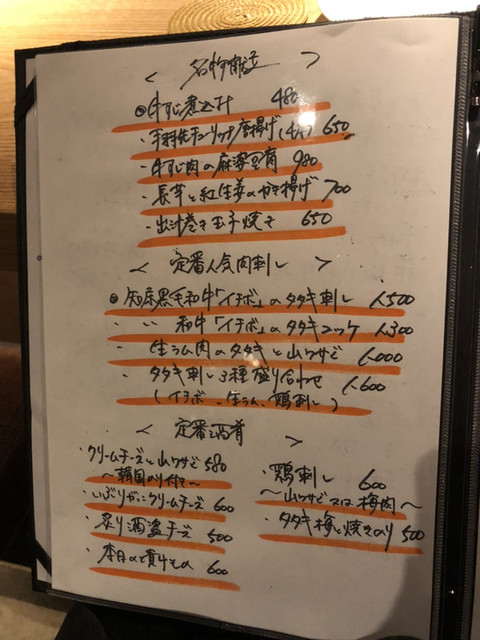 < 名物商品 >
◎牛すじ煮込み 480
・手羽先チューリップ唐揚げ(4P) 650
・牛すじ肉の麻婆豆腐 980
・長芋と紅生姜のかき揚げ 700
・出汁巻き玉子焼き 650
< 定番人気肉刺し >
◎知床黒毛和牛「イチボ」のタタキ刺し 1,500
・〃 和牛「イチボ」のタタキユッケ 1,300
・生ラム肉のタタキと山ワサビ 1,000
・タタキ刺し3種盛り合わせ 1,600
(イチボ、生ラム、鶏刺し)
< 定番酒肴 >
・クリームチーズと山ワサビ 580
〜韓国のり付き〜
・いぶりがっこクリームチーズ 600
・炙り酒盗チーズ 500
・本日の 600
・鶏刺し 600
〜山ワサビ又は梅肉〜
・タタキ梅と焼きのり 500